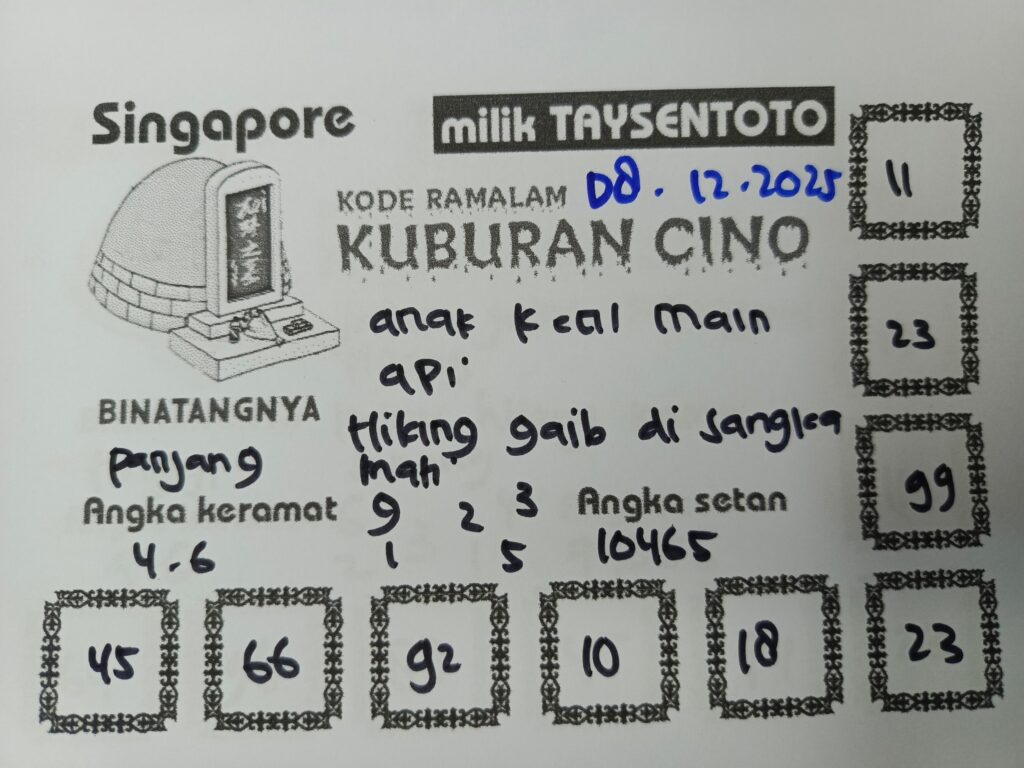 Singapore
milik TAYSENTOTO
KODE RAMALAM 08.12.2025
KUBURAN CINO
anak kecil main
api
BINATANGNYA
panjang
Hiking gaib di sangka
mati
Angka keramat
4.6
9 2 3
1 5
Angka setan
10465
11
23
99
45 66 92 10 18 23